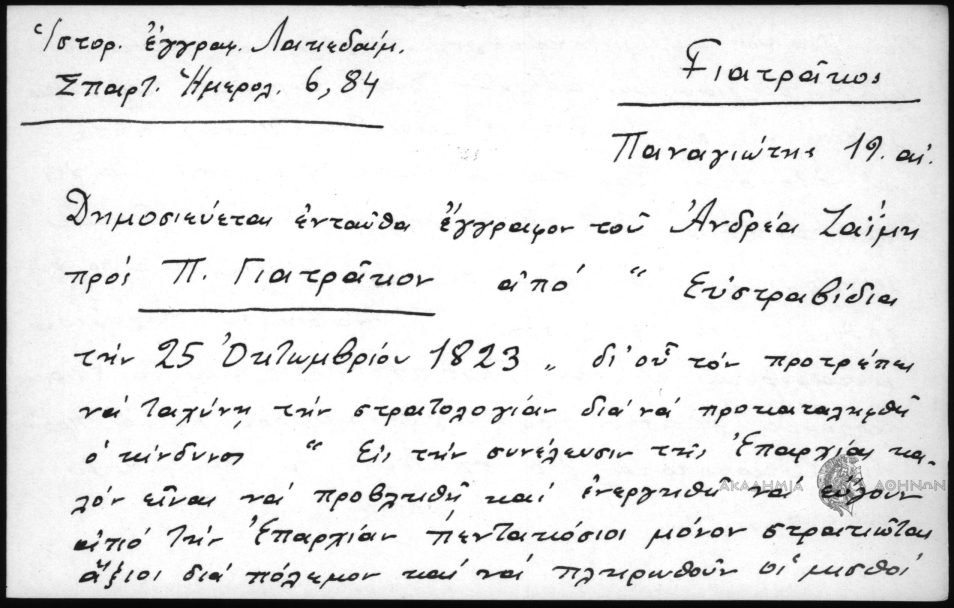 Ἱστορ. ἐγγραφ. Λακεδαίμ.
Σπαρτ. Ἡμερολ. 6, 84
Γιατρᾶκος
Παναγιώτης 19. αἰ.
Δημοσιεύεται ἐνταῦθα ἔγγραφον τοῦ Ἀνδρέα Ζαΐμη
πρός Π. Γιατρᾶκον ἀπό " Εὐστραβίδια
τήν 25 Ὀκτωμβρίου 1823 " δι' οὗ τόν προτρέπει
νά ταχύνῃ τήν στρατολογίαν διά νά προκαταληφθῇ
ὁ κίνδυνος " Εἰς τήν συνέλευσιν τῆς Ἐπαρχίας κα-
λόν εἶναι νά προβληθῇ καί ἐνεργηθῇ νά εὔγουν
ἀπό τήν Ἐπαρχίαν πεντακόσιοι μόνον στρατιῶται
ἄξιοι διά πόλεμον καί νά πληρωθοῦν οἱ μισθοί
ΑΚΑΔΗΜΙΑ ΑΘΗΝΩΝ